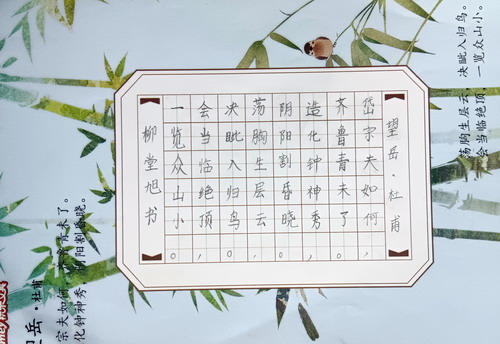 望岳·杜甫
岱宗夫如何，
齐鲁青未了。
造化钟神秀，
阴阳割昏晓。
荡胸生层云，
决眦入归鸟。
会当临绝顶，
一览众山小。
柳堂旭书
望岳·杜甫
宗夫如何，齐鲁青未了。
化钟神秀，阴阳割昏晓。
荡胸生层云，决眦入归鸟。
会当临绝顶，一览众山小。